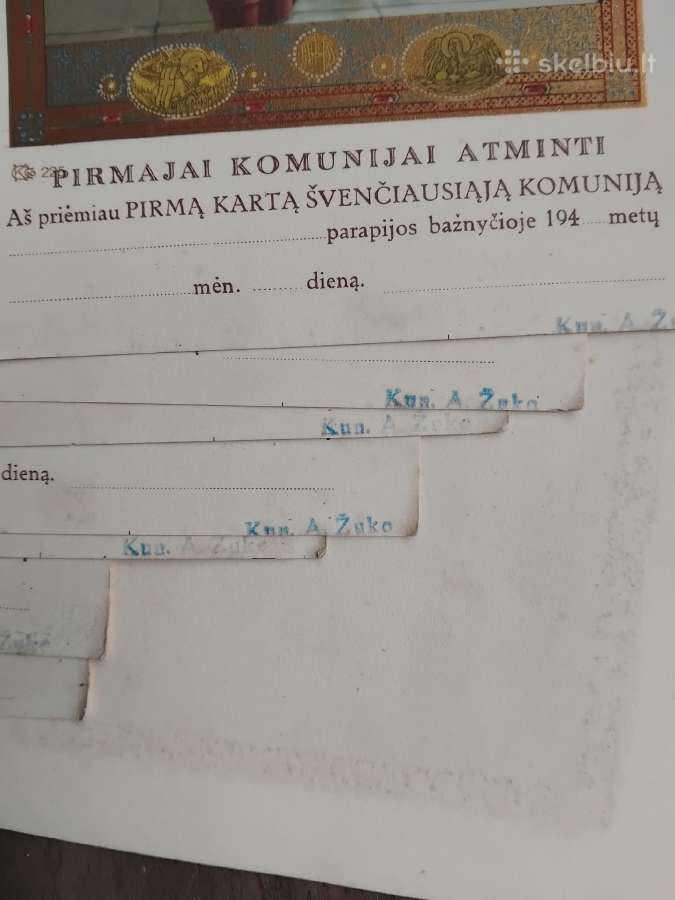 skelbiu.lt
PIRMAJAI KOMUNIJAI ATMINTI
Aš priėmiau PIRMĄ KARTĄ ŠVENČIAUSIĄJĄ KOMUNIJĄ
parapijos bažnyčioje 194 metų
mėn. dieną.
Kun. A. Žu
Kun. A. Žuko
Kun. A. Žuko
dieną.
Kun. A. Žuko
Kun. A. Žuko